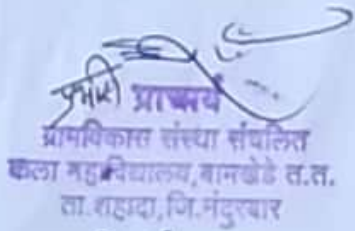 प्रभारी प्राचार्य
ग्रामविकास संस्था संचलित
कला महाविद्यालय, बामखेडे त.त.
ता.शहादा, जि.नंदुरबार